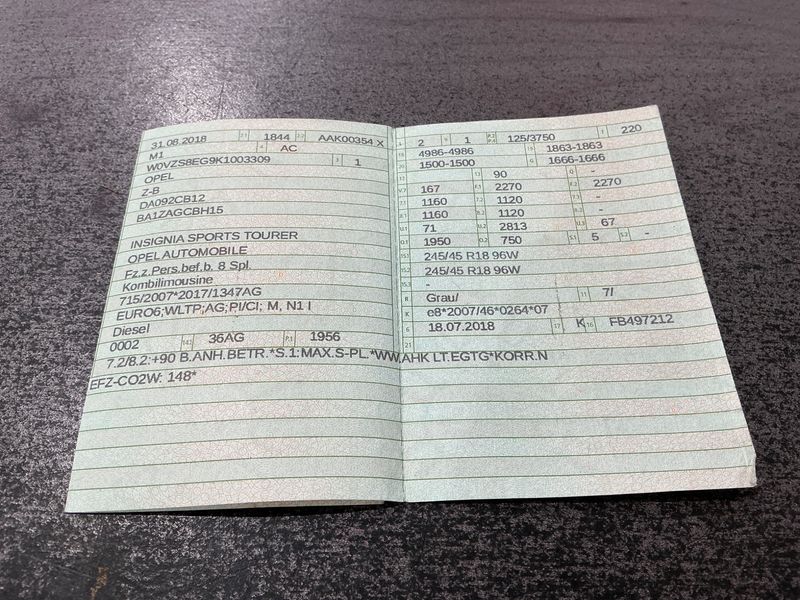 31.08.2018 2.1 1844 2.2 AAK00354 X
M1 4 AC
W0VZS8EG9K1003309 3 1
OPEL
Z-B
DA092CB12
BA1ZAGCBH15
INSIGNIA SPORTS TOURER
OPEL AUTOMOBILE
Fz.z.Pers.bef.b. 8 Spl.
Kombilimousine
715/2007*2017/1347AG
EURO6;WLTP;AG;PI/CI; M, N1 I
Diesel
0002 14.1 36AG P.1 1956
7.2/8.2:+90 B.ANH.BETR.*S.1:MAX.S-PL.*WW.AHK LT.EGTG*KORR.N
EFZ-CO2W: 148*
L 2 9 1 P.2 P.4 125/3750 T 220
18 4986-4986 19 1863-1863
20 1500-1500 G 1666-1666
12 - 13 90 Q -
V.7 167 F.1 2270 F.2 2270
7.1 1160 7.2 1120 7.3 -
8.1 1160 8.2 1120 8.3 -
U.1 71 U.2 2813 U.3 67
O.1 1950 O.2 750 S.1 5 S.2 -
15.1 245/45 R18 96W
15.2 245/45 R18 96W
15.3 -
R Grau/ 11 7/
K e8*2007/46*0264*07
6 18.07.2018 17 K 16 FB497212
21